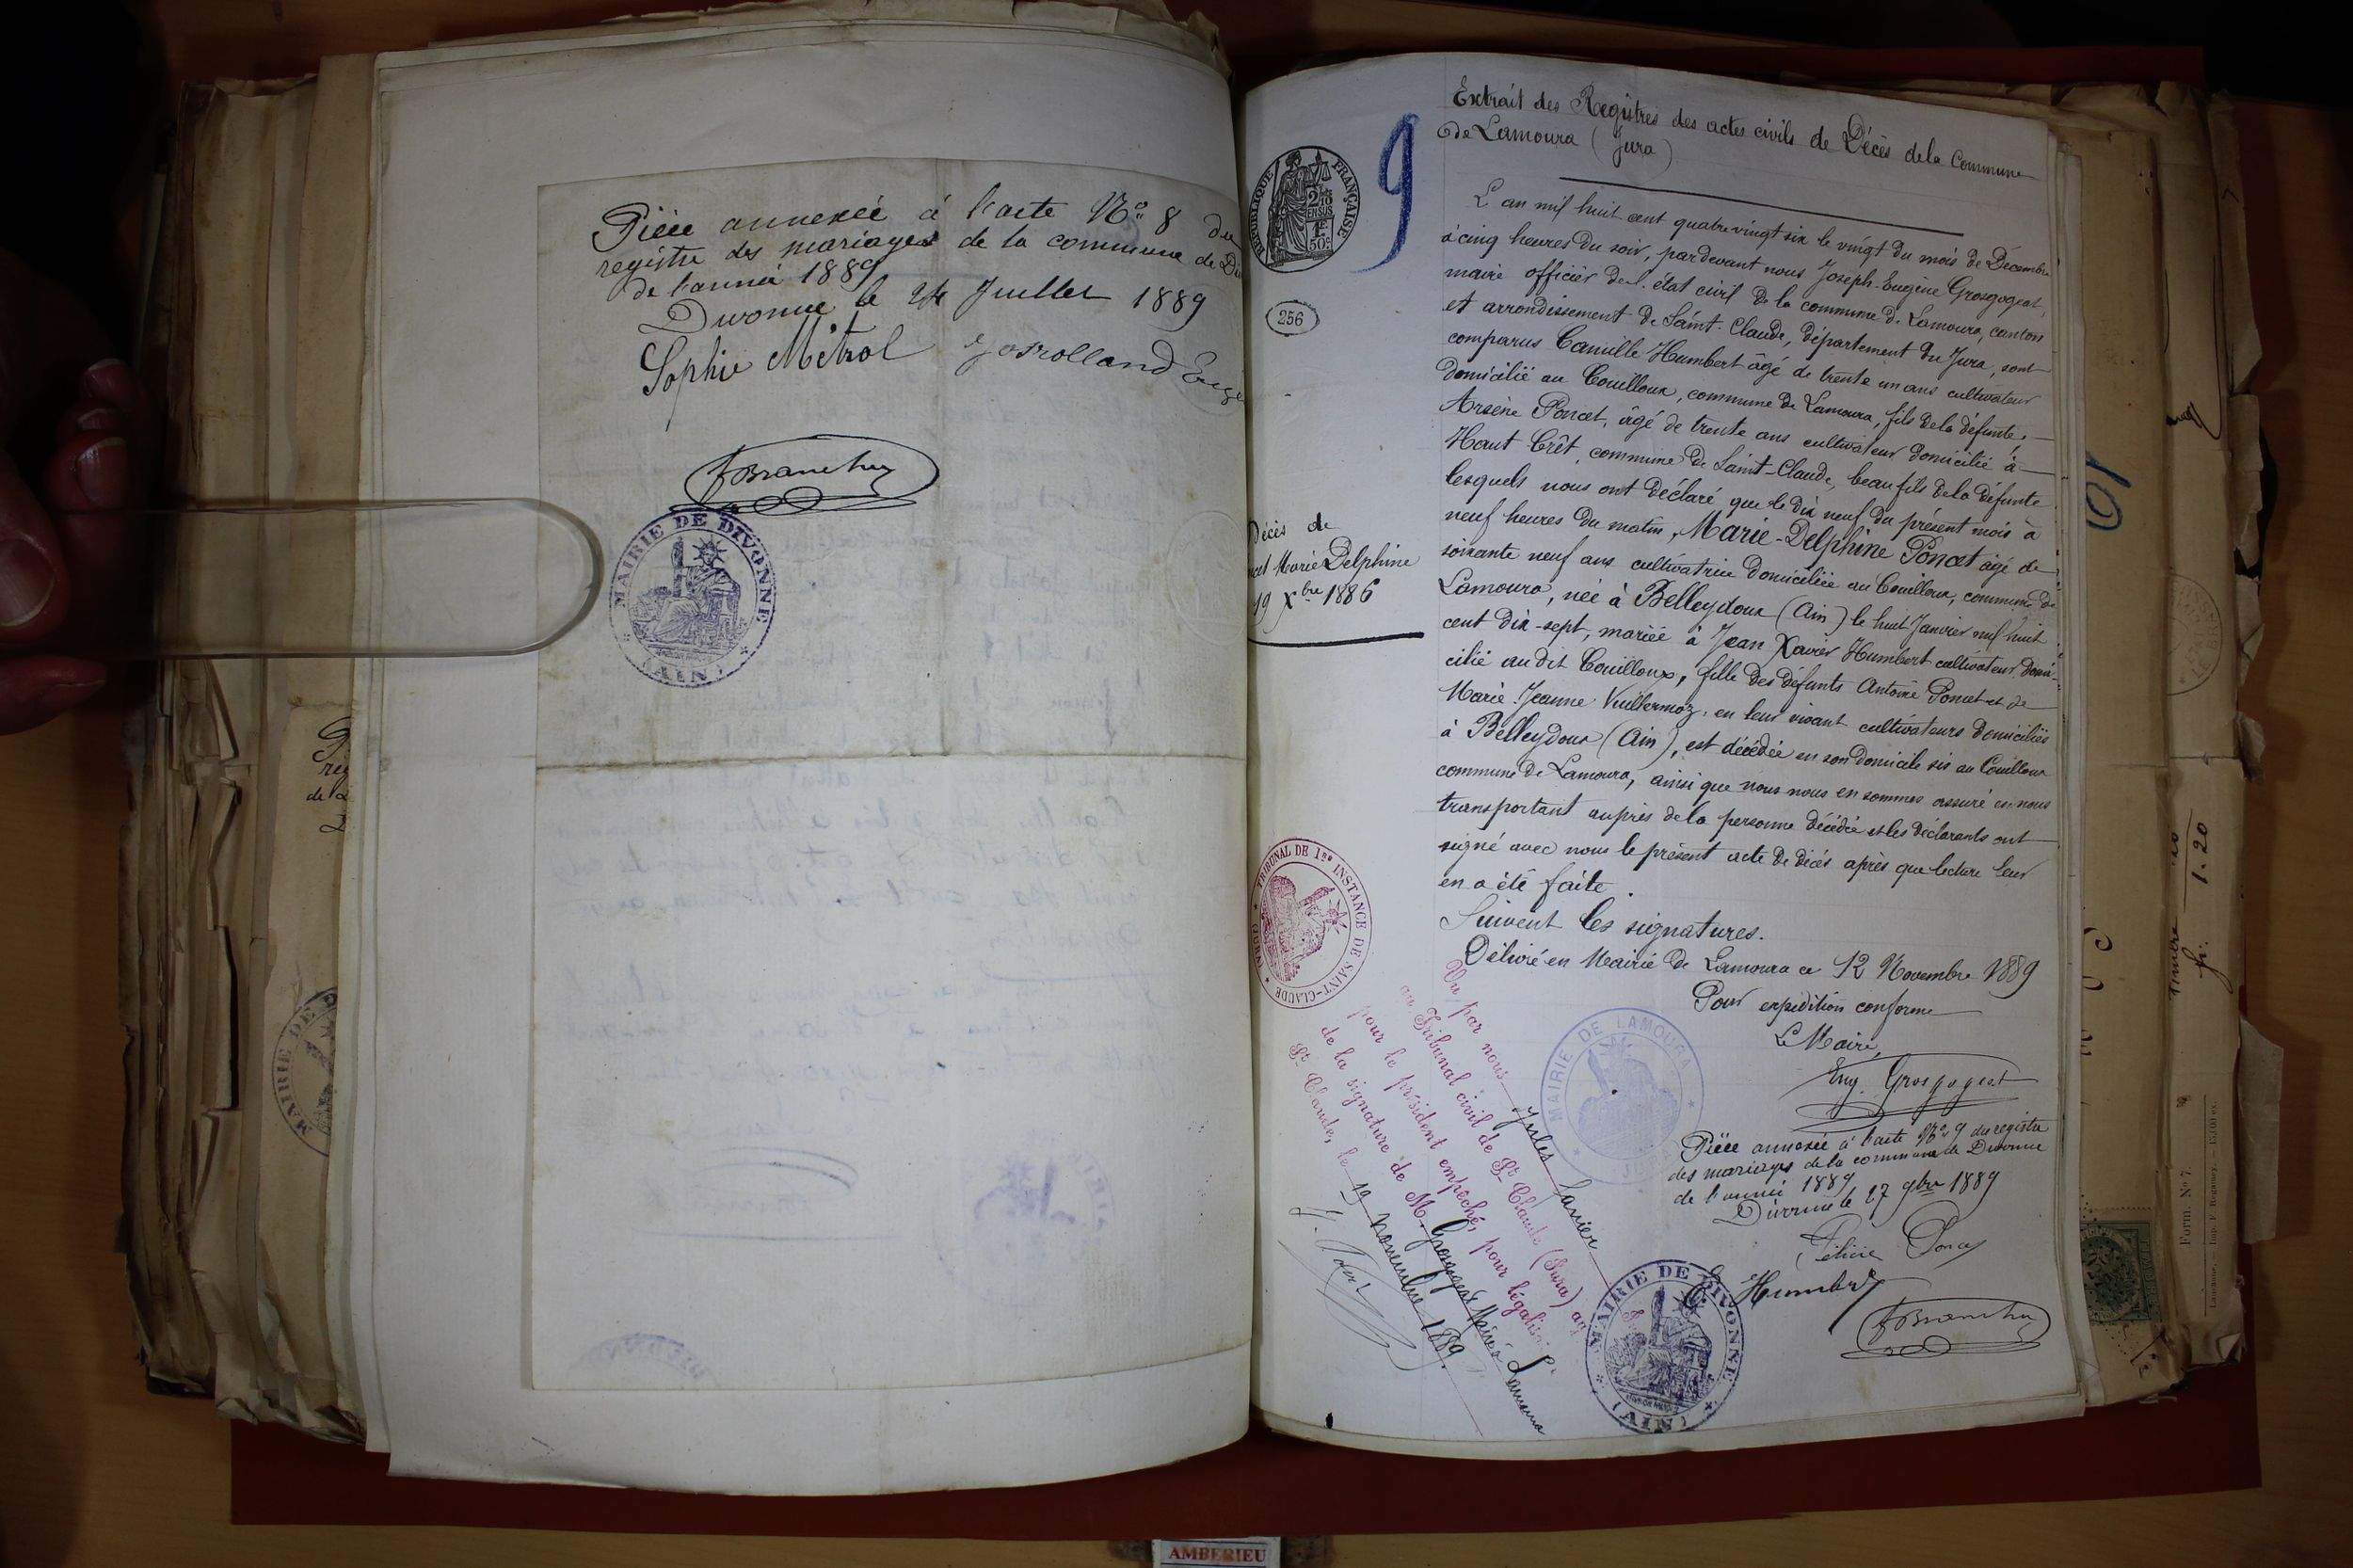 Pièce annexée à l'acte N° 8 du
registre des mariages de la commune de
de l'année 1889
Divonne le 24 Juillet 1889
Sophie Métral
MAIRIE DE DIVONNE
(AIN)
9
Extrait des Registres des actes civils de Décès de la Commune
de Lamoura (Jura)
RÉPUBLIQUE FRANÇAISE
2/10
EN SUS
1F
50c
256
L'an mil huit cent quatre vingt six le vingt du mois de Décembre
à cinq heures du soir, par devant nous Joseph-Eugène Grosgogeat,
maire officier de l'état civil de la commune de Lamoura, canton
et arrondissement de Saint-Claude, département du Jura, sont
comparus Camille Humbert âgé de trente un ans cultivateur
domicilié au Couilloux, commune de Lamoura, fils de la défunte,
Arsène Poncet, âgé de trente ans cultivateur domicilié à
Haut Crêt, commune de Saint-Claude, beau fils de la défunte
lesquels nous ont déclaré que le dix neuf du présent mois à
neuf heures du matin, Marie-Delphine Poncet âgé de
soixante neuf ans cultivatrice domiciliée au Couilloux, commune de
Lamoura, née à Belleydoux (Ain) le huit Janvier mil huit
cent dix-sept, mariée à Jean Xavier Humbert cultivateur domi-
cilié au dit Couilloux, fille des défunts Antoine Poncet et de
Marie-Jeanne Vuillermoz, en leur vivant cultivateurs domiciliés
à Belleydoux (Ain), est décédée en son domicile sis au Couilloux
commune de Lamoura, ainsi que nous nous en sommes assuré en nous
transportant auprès de la personne décédée et les déclarants ont
signé avec nous le présent acte de décès après que lecture leur
en a été faite.
Suivent les signatures.
Délivré en Mairie de Lamoura ce 12 Novembre 1889
Pour expédition conforme
Le Maire,
Eug. Grosgogeat
Décès de
Marie Delphine
19 Xbre 1886
TRIBUNAL DE 1re INSTANCE DE SAINT-CLAUDE
(JURA)
Vu par nous Jules Janier
au Tribunal civil de St Claude (Jura)
pour le président empêché, pour légalisation
de la signature de M. Grosgogeat Maire Lamoura
St Claude, le 19 Novembre 1889.
MAIRIE DE LAMOURA
Pièce annexée à l'acte N° 9 du registre
des mariages de la commune de Divonne
de l'année 1889
Divonne le 27 9bre 1889
Félicie Poncet
Humbert
MAIRIE DE DIVONNE
(AIN)
MAIRIE DE D
1.20
Form. N° 7.
AMBERIEU